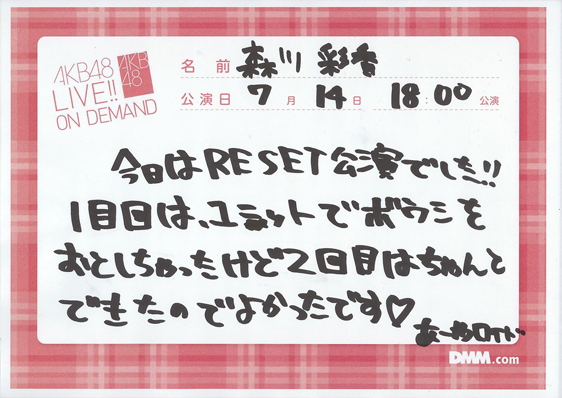 AKB48
LIVE!!
ON DEMAND
AKB
48
名前 森川 彩香
公演日 7月 14日 18:00 公演
今日はRESET公演でした!!
1回目は、ユニットでボウシを
おとしちゃったけど2回目はちゃんと
できたのでよかったです♡
あーやロイド
DMM.com